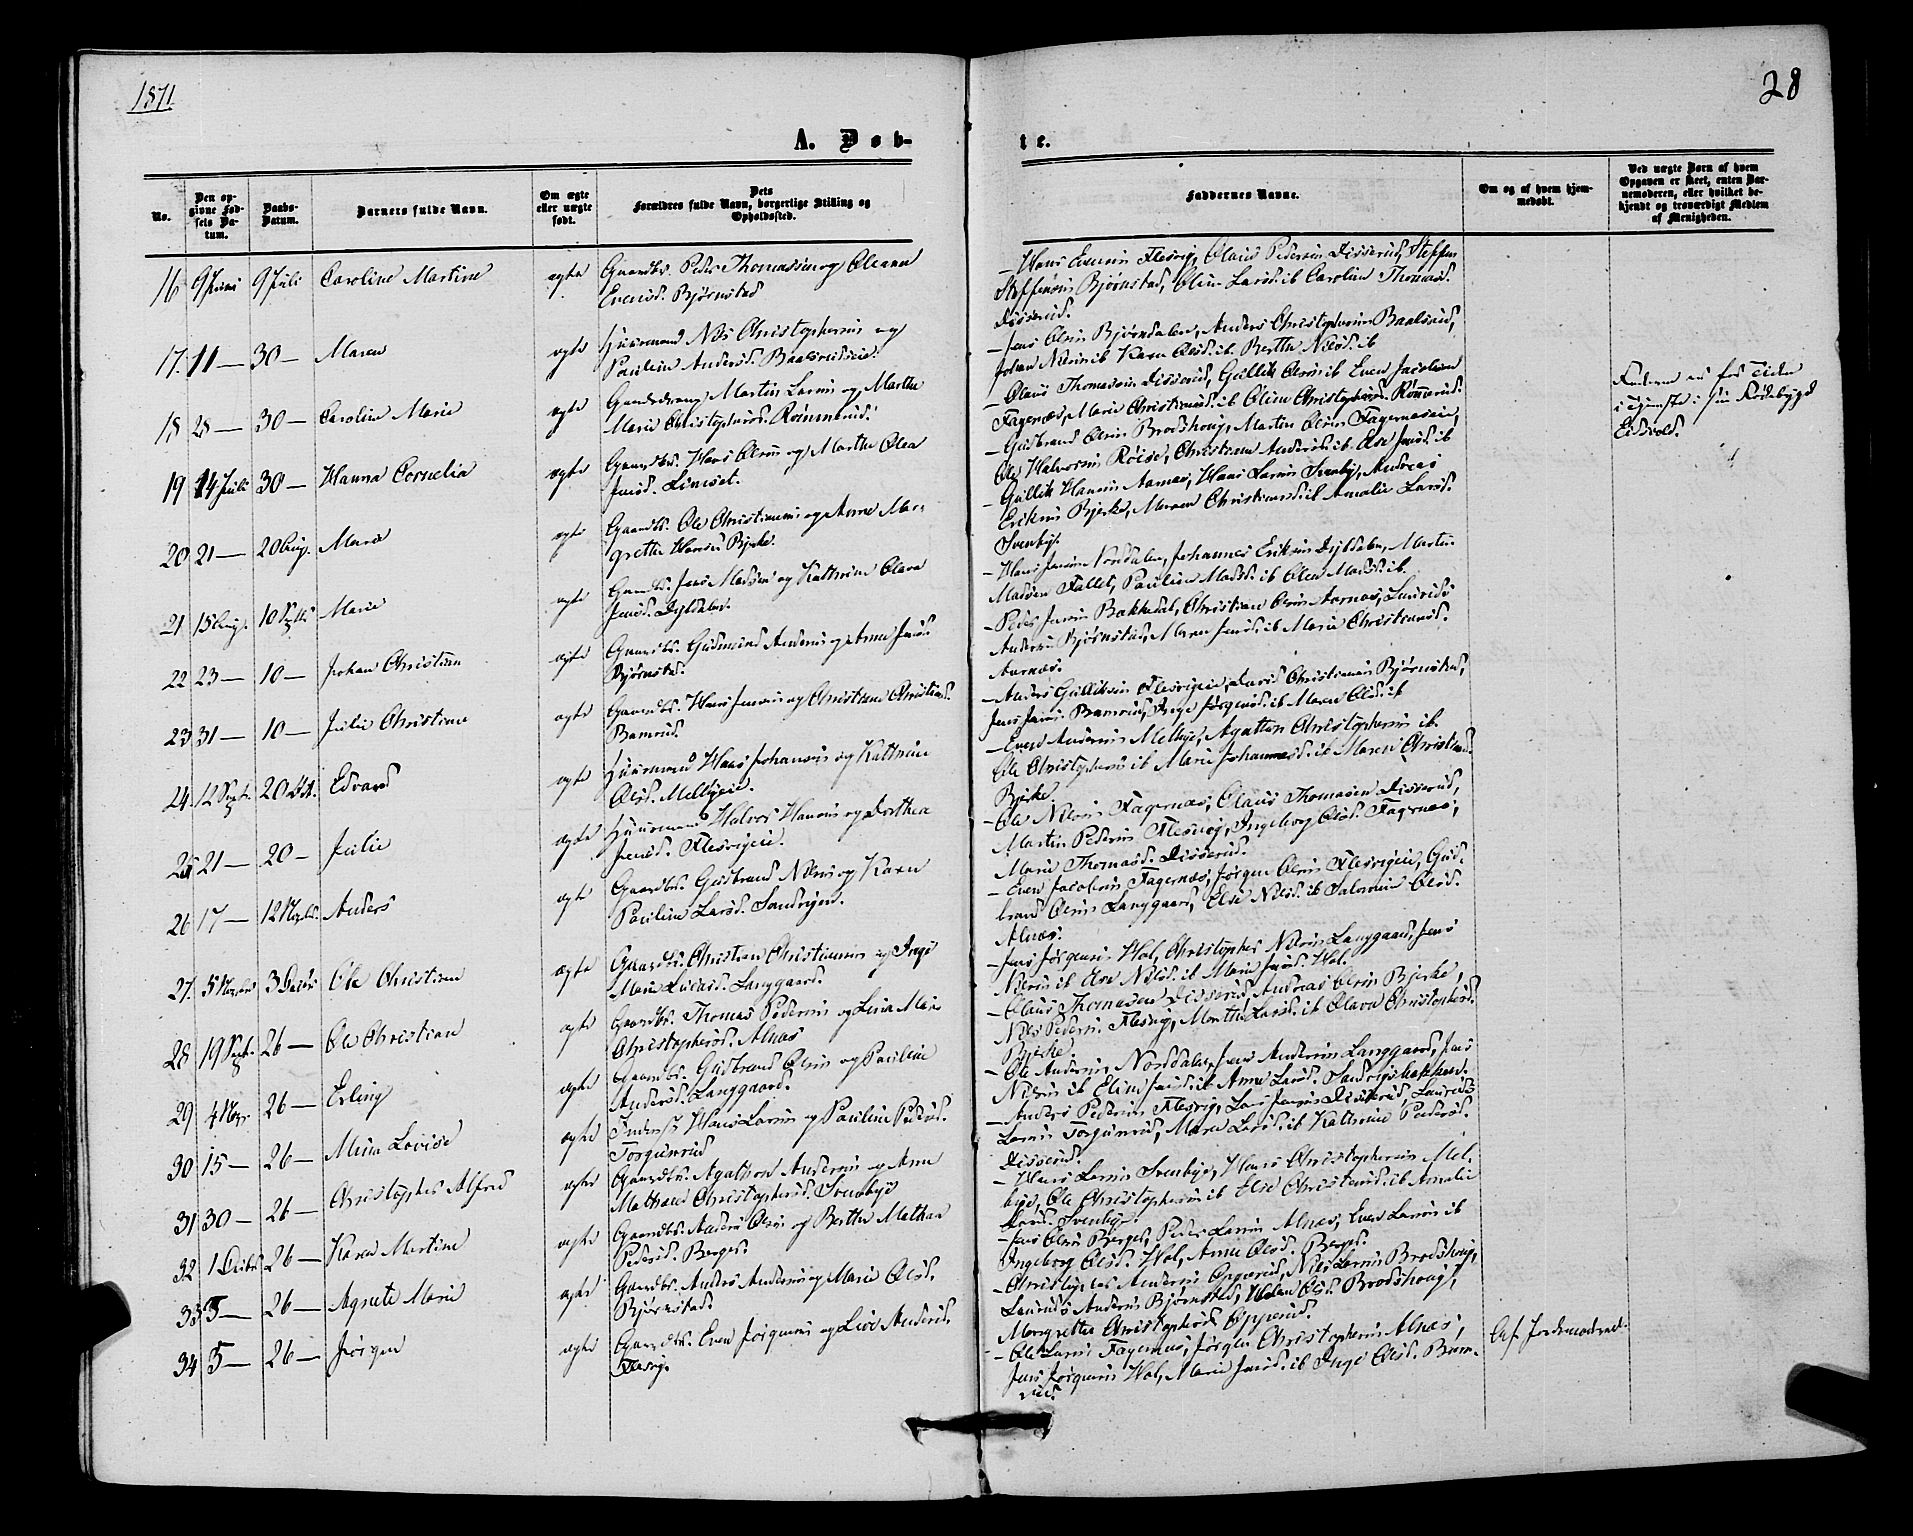 1871.
28
A. Døb-
te.
No.
Den op-
givne Fød-
sels Da-
tum.
Daabs-
Datum.
Barnets fulde Navn.
Om ægte
eller uægte
født.
Dets
Forældres fulde Navn, borgerlige Stilling og
Opholdssted.
Faddernes Navne.
Om og af hvem hjem-
medøbt.
Ved uægte Barn af hvem
Opgaven er skeet, enten Bar-
nemoderen, eller hvilket be-
kjendt og troværdigt Medlem
af Menigheden.
16 9 Juni 9 Juli Caroline Martine ægte Gaardbr. Peder Thomassen og Oleana
Evensd. Bjørnstad
– Hans Evensen Flesvig, Olaus Pedersen Disserud, Steffen
Steffensen Bjørnstad, Oline Larsd. ib Caroline Thomasd.
Disserud.
17. 11 — 30 — Maren ægte Huusmand Nils Christophersen og
Pauline Andersd. Baalsrudeie.
– Jens Olsen Bjørndalen, Anders Christophersen Baalsrud,
Johan Nilsen ib Karen Olsd. ib. Berthe Nilsd. ib
18 28 — 30 — Caroline Marie ægte Gaardsdreng Martin Larsen og Marthe
Marie Christophersd. Rømmerud.
– Olaus Thomassen Disserud, Gullik Olsen ib Even Jacobsen
Fagernæs, Marie Christiansd. ib Oline Christophersd. Rømmerud.
Faderen er for Tiden
i Tjeneste i sin Fødebygd
Eidsvold.
19 14 Juli 30 — Hanna Cornelia ægte Gaardbr. Hans Olsen og Marthe Olea
Jensd. Lineset.
– Gudbrand Olsen Brodshoug, Martin Olsen Fagernæseie,
Ole Halvorsen Røise, Christiane Andersd. ib. Else Jensd. ib
20 21 — 20 Aug. Maren ægte Gaardbr. Ole Christiansen og Anne Mar-
grethe Hansd. Bjerke.
– Gullik Hansen Aarnæs, Hans Larsen Svenby, Andreas
Eriksen Bjerke, Maren Christiansd. ib Amalie Larsd.
Svenby.
21 15 Aug. 10 Septbr Marie ægte Gaardbr. Jens Madsen og Kathrine Olava
Jensd. Dyldalen.
– Hans Jensen Norddalen, Johannes Eriksen Dyldalen, Martin
Madsen Fallet, Pauline Madsd. ib Olea Madsd. ib
22 23 — 10 — Johan Christian ægte Gaardbr. Gudmund Andersen og Anne Jensd.
Bjørnstad.
– Peder Jensen Bakkedal, Christian Olsen Aarnæs, Laurids
Andersen Bjørnstad, Maren Jensd. ib Marie Christiansd.
Aarnæs.
23 31 — 10 — Julie Christiane ægte Gaardbr. Hans Jensen og Christiane Christiansd.
Bamrud.
– Anders Gulliksen Flesvigeie, Lars Christiansen Bjørnstad,
Jens Jensen Bamrud, Inge Jørgensd. ib Maren Olsd. ib
24 12 Sept. 20 Okt. Edvard ægte Huusmand Hans Johansen og Kathrine
Olsd. Melbyeie.
– Even Andersen Melbye, Agathon Christophersen ib.
Ole Christophersen ib Marie Johannesd. ib Maren Christiansd.
Bjerke
25 21 — 20 — Julie ægte Huusmand Halvor Hansen og Dorthea
Jensd. Flesvigeie.
– Ole Nilsen Fagernæs, Olaus Thomasen Disserud,
Martin Pedersen Flesvig, Ingeborg Olsd. Fagernæs,
Marie Thomasd. Disserud.
26 17 — 12 Novbr. Anders ægte Gaardbr. Gudbrand Nilsen og Karen
Pauline Larsd. Sandvigen.
– Even Jacobsen Fagernæs, Jørgen Olsen Flesvigeie, Gud-
brand Olsen Langgaard, Else Nilsd. ib Salomine Olsd.
Alnæs.
27. 5 Novbr 3 Decbr Ole Christian ægte Gaardbr. Christian Christiansen og Inge
Marie Larsd. Langgaard.
– Jens Jørgensen Hol, Christopher Nilsen Langgaard, Jens
Nilsen ib Else Nilsd. ib Marie Jensd. Hol.
28 19 Sept. 26 — Ole Christian ægte Gaardbr. Thomas Pedersen og Lina Marie
Christophersd. Alnæs
– Olaus Thomasen Disserud, Andreas Olsen Bjerke,
Nils Pedersen Flesvig, Marthe Larsd. ib Olava Christophersd.
Bjerke.
29 4 Nov. 26 — Erling ægte Gaardbr. Gudbrand Olsen og Pauline
Andersd. Langgaard.
– Ole Andersen Norddalen, Jens Andersen Langgaard, Jens
Nilsen ib Eline Jensd. ib Anne Larsd. Sandvigsbakken.
30 15 — 26 — Mina Lovise ægte Inderst Hans Larsen og Pauline Pedersd.
Torgunrud
– Anders Pedersen Flesvig, Lars Jensen Disserud, Laurids
Larsen Torgunrud, Maren Larsd. ib Kathrine Pedersd.
Disserud.
31 30 — 26 — Christopher Alfred ægte Gaardbr. Agathon Andersen og Anne
Mathea Christophersd. Svenbye
– Hans Larsen Svenbye, Hans Christophersen Mel-
bye, Ole Christophersen ib Else Christiansd. ib Amalie
Larsd. Svenbye.
32 1 Decbr 26 — Karen Martine ægte Gaardbr. Anders Olsen og Berthe Mathea
Pedersd. Berget.
– Jens Olsen Berget, Peder Larsen Alnæs, Even Larsen ib
Ingeborg Olsd. Hol, Anne Olsd. Berget.
33 3 — 26 — Agnete Marie ægte Gaardbr. Anders Andersen og Marie Olsd.
Bjørnstad
– Christopher Andersen Opperud, Nils Larsen Brodshoug,
Laurids Andersen Bjørnstad, Helene Olsd. Brodshoug,
Margrethe Christophersd. Opperud.
34 5 — 26 — Jørgen ægte Gaardbr. Even Jørgensen og Lise Andersd.
Flesvig.
– Ole Larsen Fagernæs, Jørgen Christophersen Alnæs,
Jens Jørgensen Hol, Marie Jensd. ib Inge Olsd. Bam-
rud.
Af Jordemoderen.